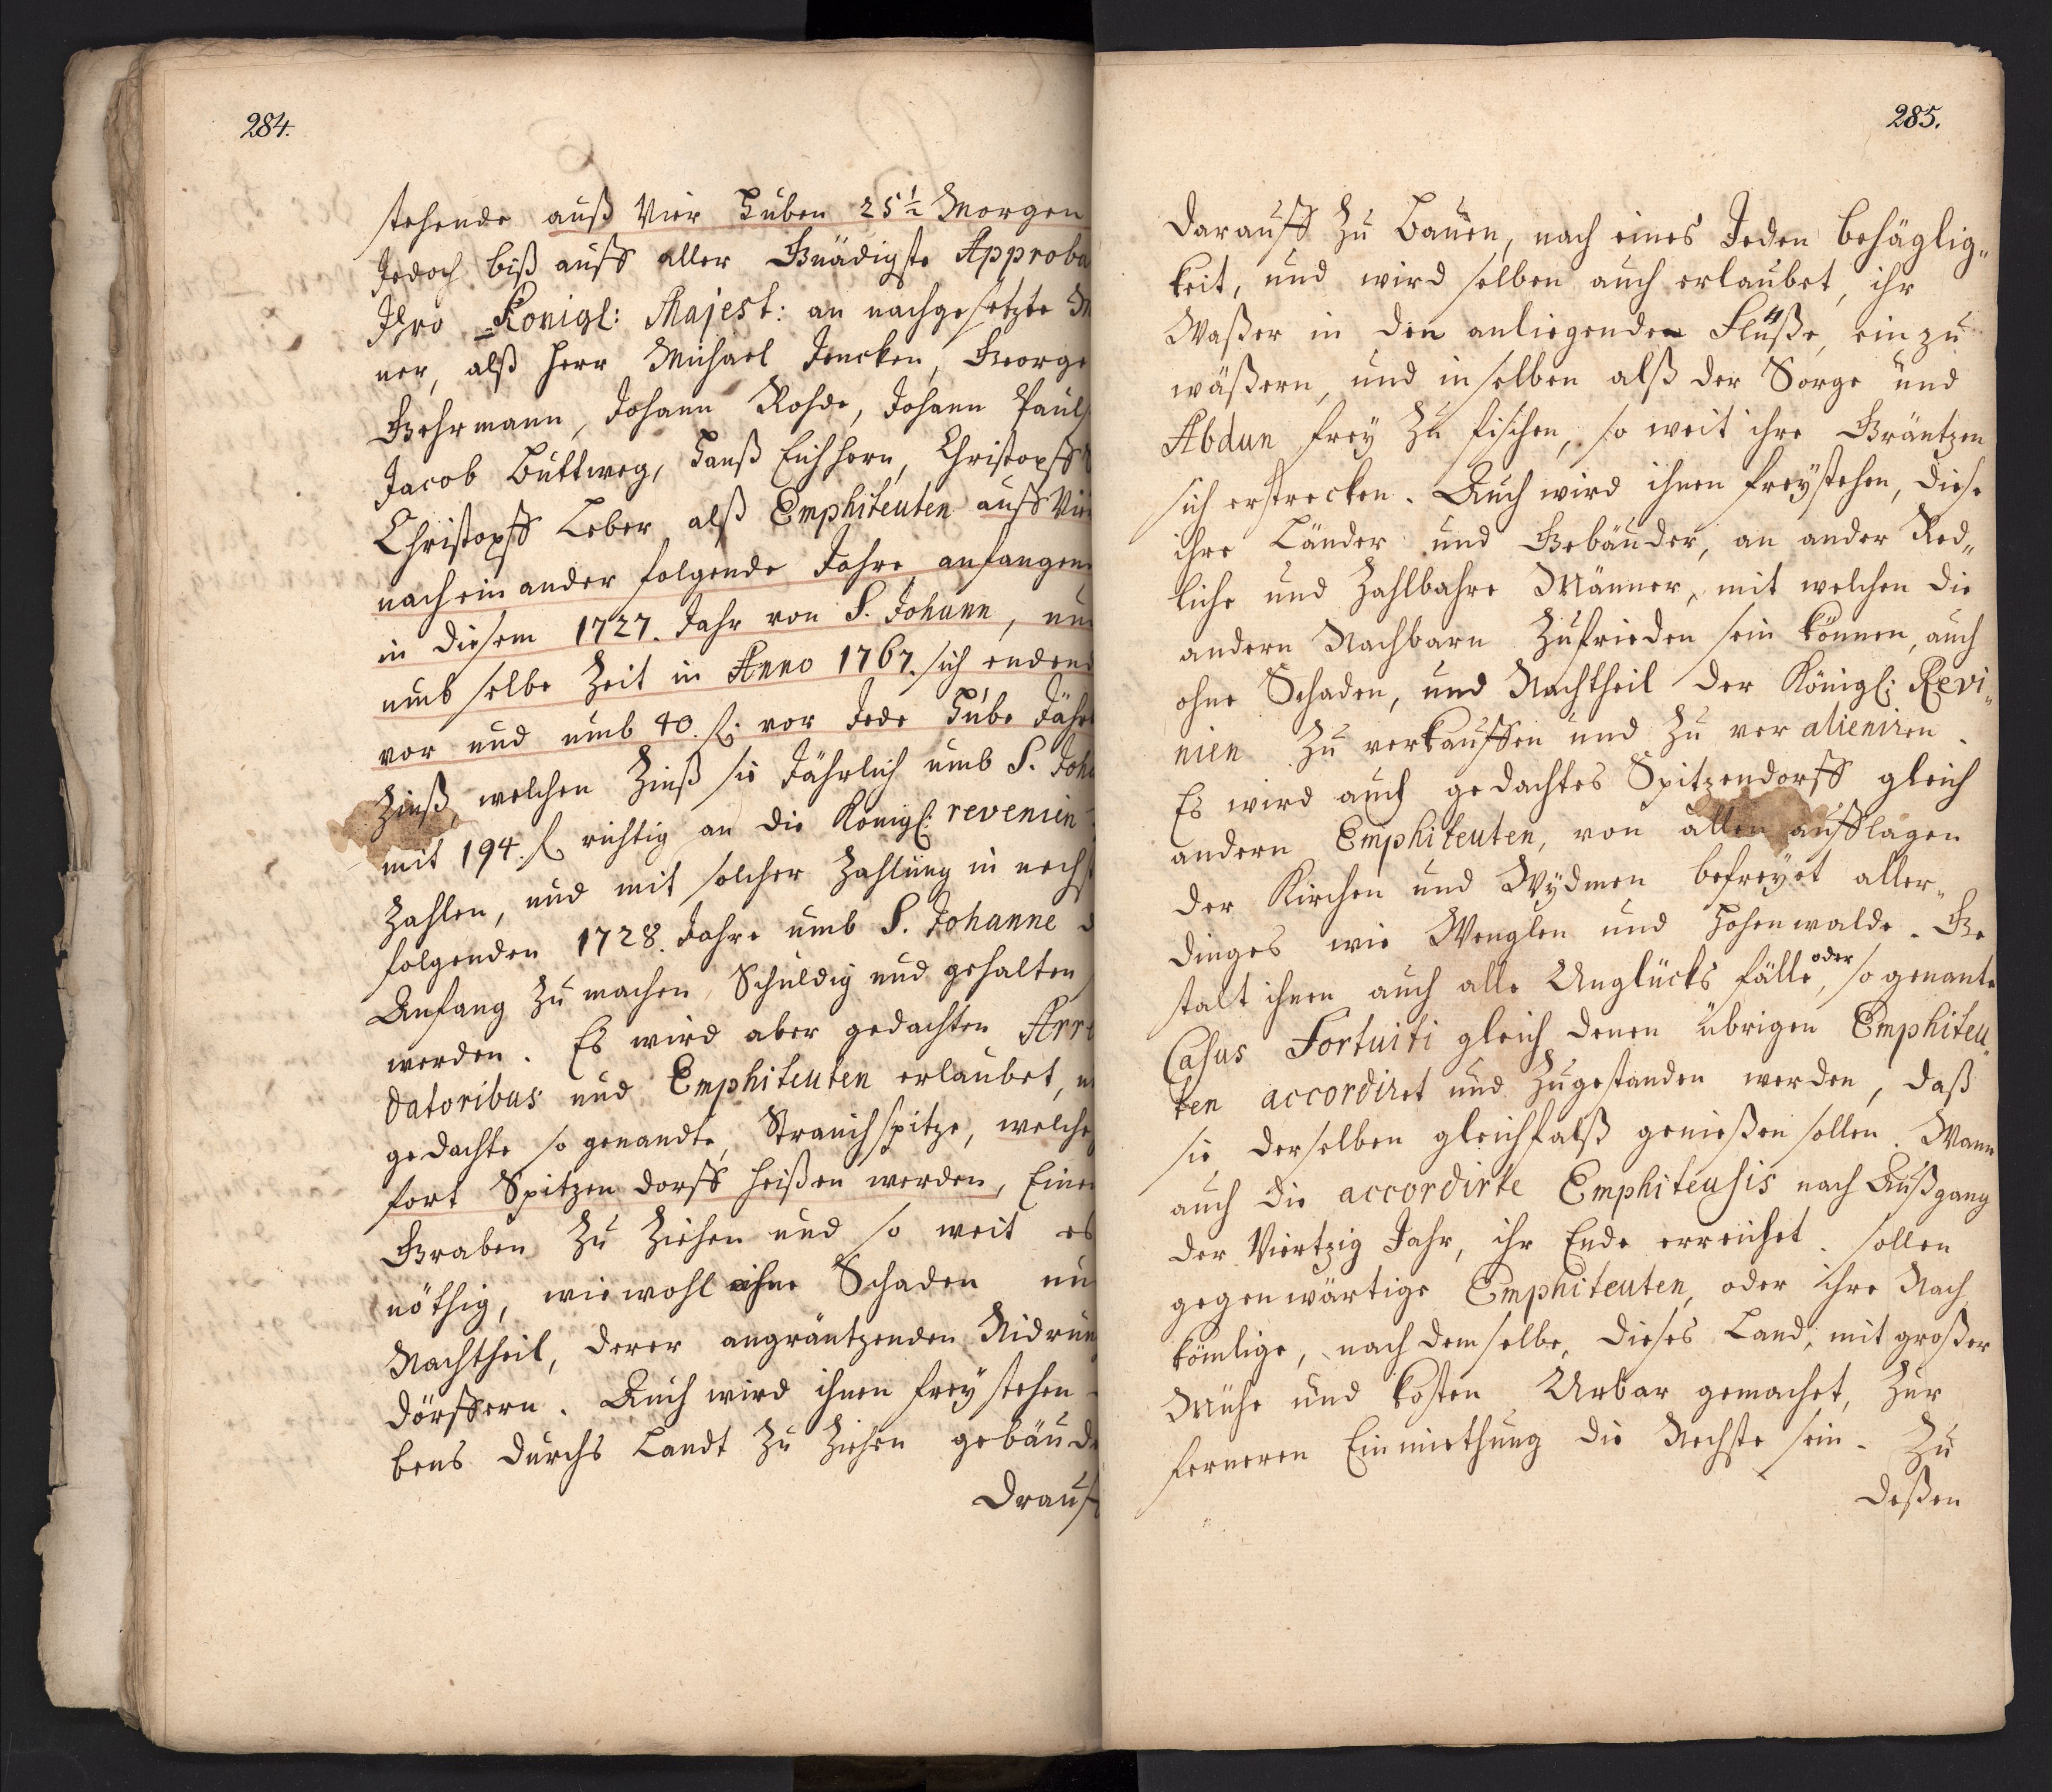 284.
stehende auß Vier Huben 25½ Morgen
Jedoch biß auff aller Gnädigste Approba
Ihro Königl: Majest: an nachgesetzte M
ner, alß Herr Michael Jencken, George
Gehrmann, Johann Rohde, Johann Pauls
Jacob Buttweg, Hanß Eichhorn, Christoph
Christoph Leber alß Emphiteuten auff Vier
nach ein ander folgende Jahre, anfangen
in diesem 1727. Jahr von S. Johann, un
umb selbe Zeit in Anno 1767. sich endend
vor und umb 40. fl. vor Jede Hube Jähr
Zinß, welchen Zinß sie Jährlich umb S. Joha
mit 194. fl richtig an die Königl: revenien
Zahlen, und mit solcher Zahlung in nechst
folgenden 1728. Jahre umb S. Johanne d
Anfang zu machen, Schuldig und gehalten
werden. Es wird aber gedachten Arre
datoribus und Emphiteuten erlaubet, u
gedachte so genandte, Strauchspitze, welche
fort Spitzendorff heißen werden, Einen
Graben zu Ziehen und so weit es
nöthig, wiewohl ohne Schaden un
Nachtheil, derer angräntzenden Nidrun
dörffern. Auch wird ihnen frey stehen
bens durchs Landt zu Ziehen gebäude
Drauff
285.
darauff zu Bauen, nach eines Jeden behäglig„
keit, und wird selben auch erlaubet, ihr
Waßer in den anliegenden Flüße, ein zu
wäßern, und in selben alß der Sorge und
Abdun frey zu fischen, so weit ihre Gräntzen
sich erstrecken. Auch wird ihnen freystehen, diese
ihre Länder und Gebäuder, an ander Red„
liche und Zahlbahre Männer, mit welchen die
andern Nachbarn Zufrieden sein können, auch
ohne Schaden, und Nachtheil der Königl: Revi„
nien zu verkauffen und zu ver alieniren.
Es wird auch gedachtes Spitzendorff gleich
andern Emphiteuten, von allen aufflagen
der Kirchen und Wydmen befreyet aller„
dinges wie Wenglen und Hohenwalde. Ge
stalt ihnen auch alle Unglücks fälle, oder so genante
Casus Fortuiti gleich denen übrigen Emphiteu„
ten accordiret und Zugestanden werden, daß
sie, derselben gleichfalß genießen sollen. Wann
auch die accordirte Emphiteusis nach Außgang
der Viertzig Jahr, ihr Ende erreichet. sollen
gegenwärtige Emphiteuten, oder ihre Nach
kömlige, nach dem selbe, dieses Land, mit großer
Mühe und kosten Urbar gemachet, zur
ferneren Einmiethung die Nechste sein. Zu
deßen